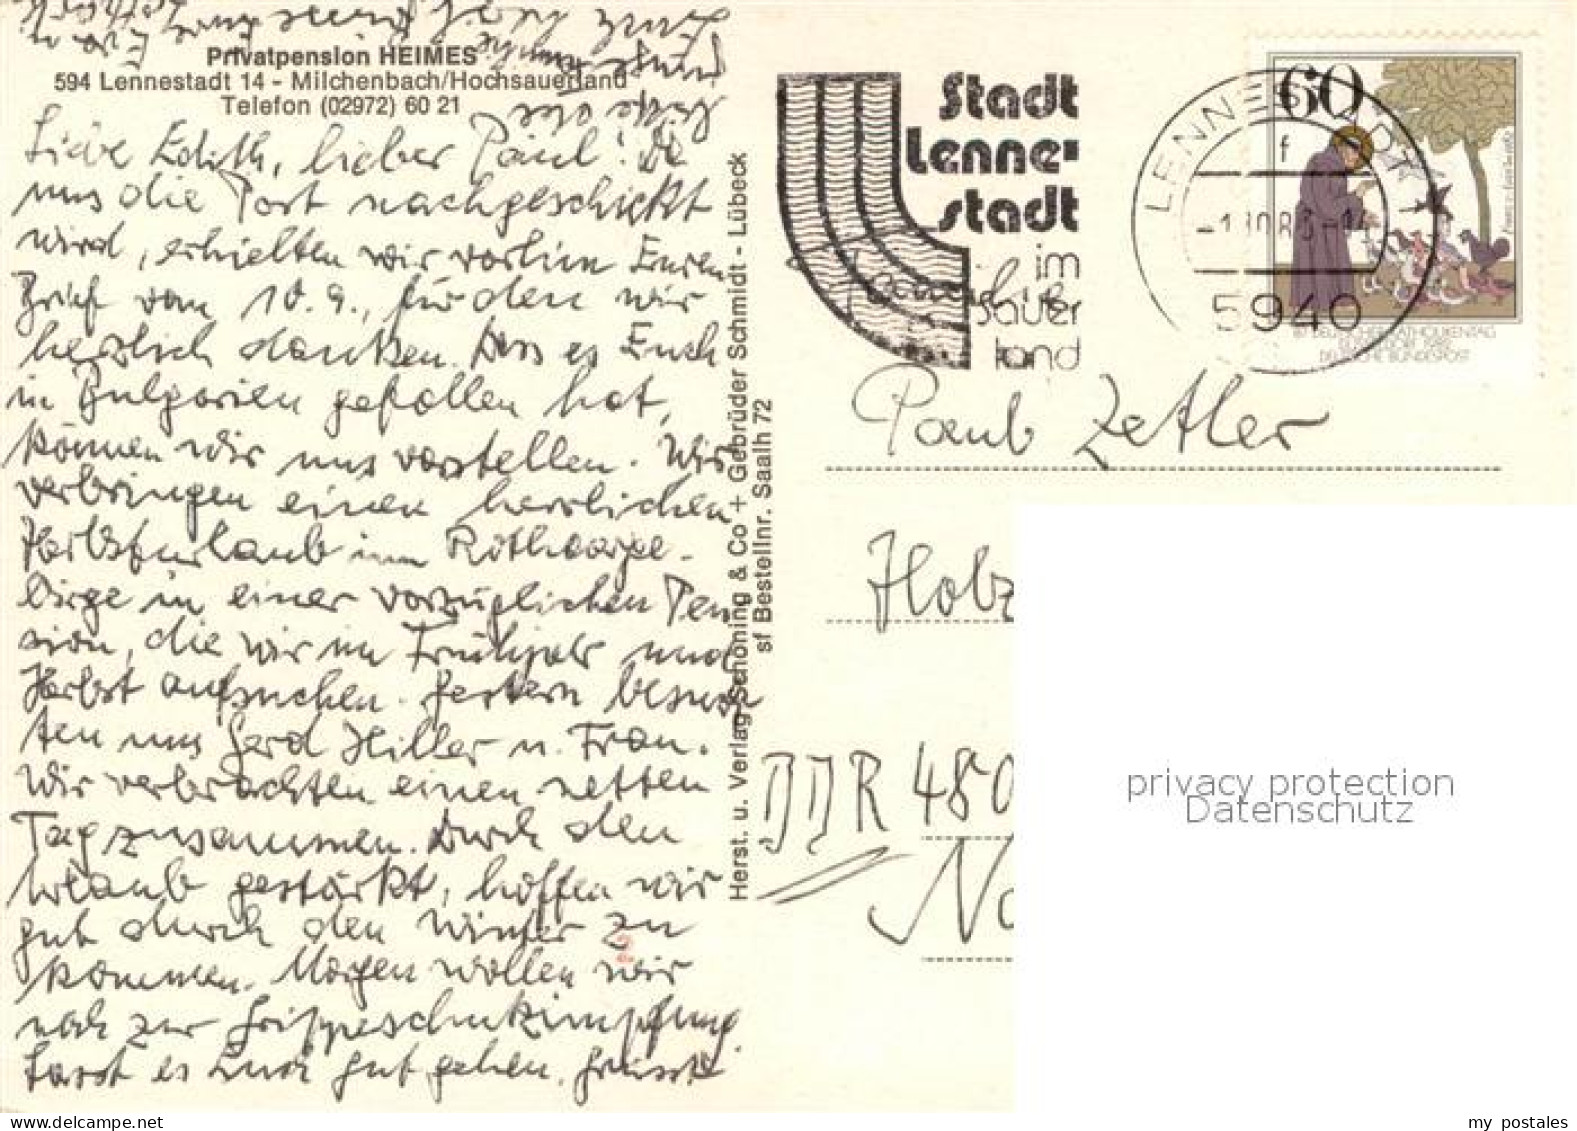 Privatpension HEIMES
594 Lennestadt 14 - Milchenbach/Hochsauerland
Telefon (02972) 60 21
Liebe Edith, lieber Paul! Da
uns die Post nachgeschickt
wird, erhielten wir vorhin Euren
Brief vom 10.9., für den wir
herzlich danken. Dass es Euch
in Bulgarien gefallen hat,
können wir uns vorstellen. Wir
verbringen einen herrlichen
Herbsturlaub im Rothaarge-
birge in einer vorzüglichen Pen
sion, die wir im Frühjahr und
Herbst aufsuchen. Gestern besuch
ten uns Gerd Hiller u. Frau.
Wir verbrachten einen netten
Tag zusammen. Durch den
Urlaub gestärkt, hoffen wir
gut durch den Winter zu
kommen. Morgen wollen wir
noch zur Grippeschutzimpfung.
Lasst es Euch gut gehen. Grüsst
Herst. u. Verlag Schöning & Co + Gebrüder Schmidt - Lübeck
sf Bestellnr. Saalh 72
Stadt
Lenne-
stadt
im
Sauer
land
LENNESTADT 1
f
-1.10.83-14
5940
60
87. DEUTSCHER KATHOLIKENTAG
DÜSSELDORF 1982
DEUTSCHE BUNDESPOST
Paul Zetler
Holz
DDR 480
Na
privacy protection
Datenschutz
my postales